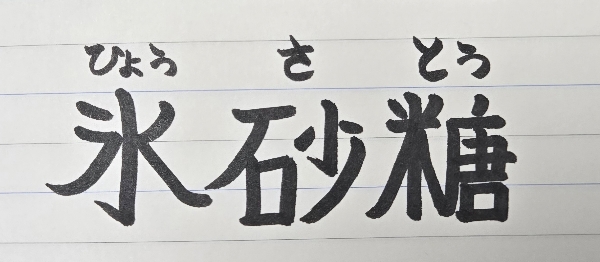 ひょう さ とう
氷砂糖